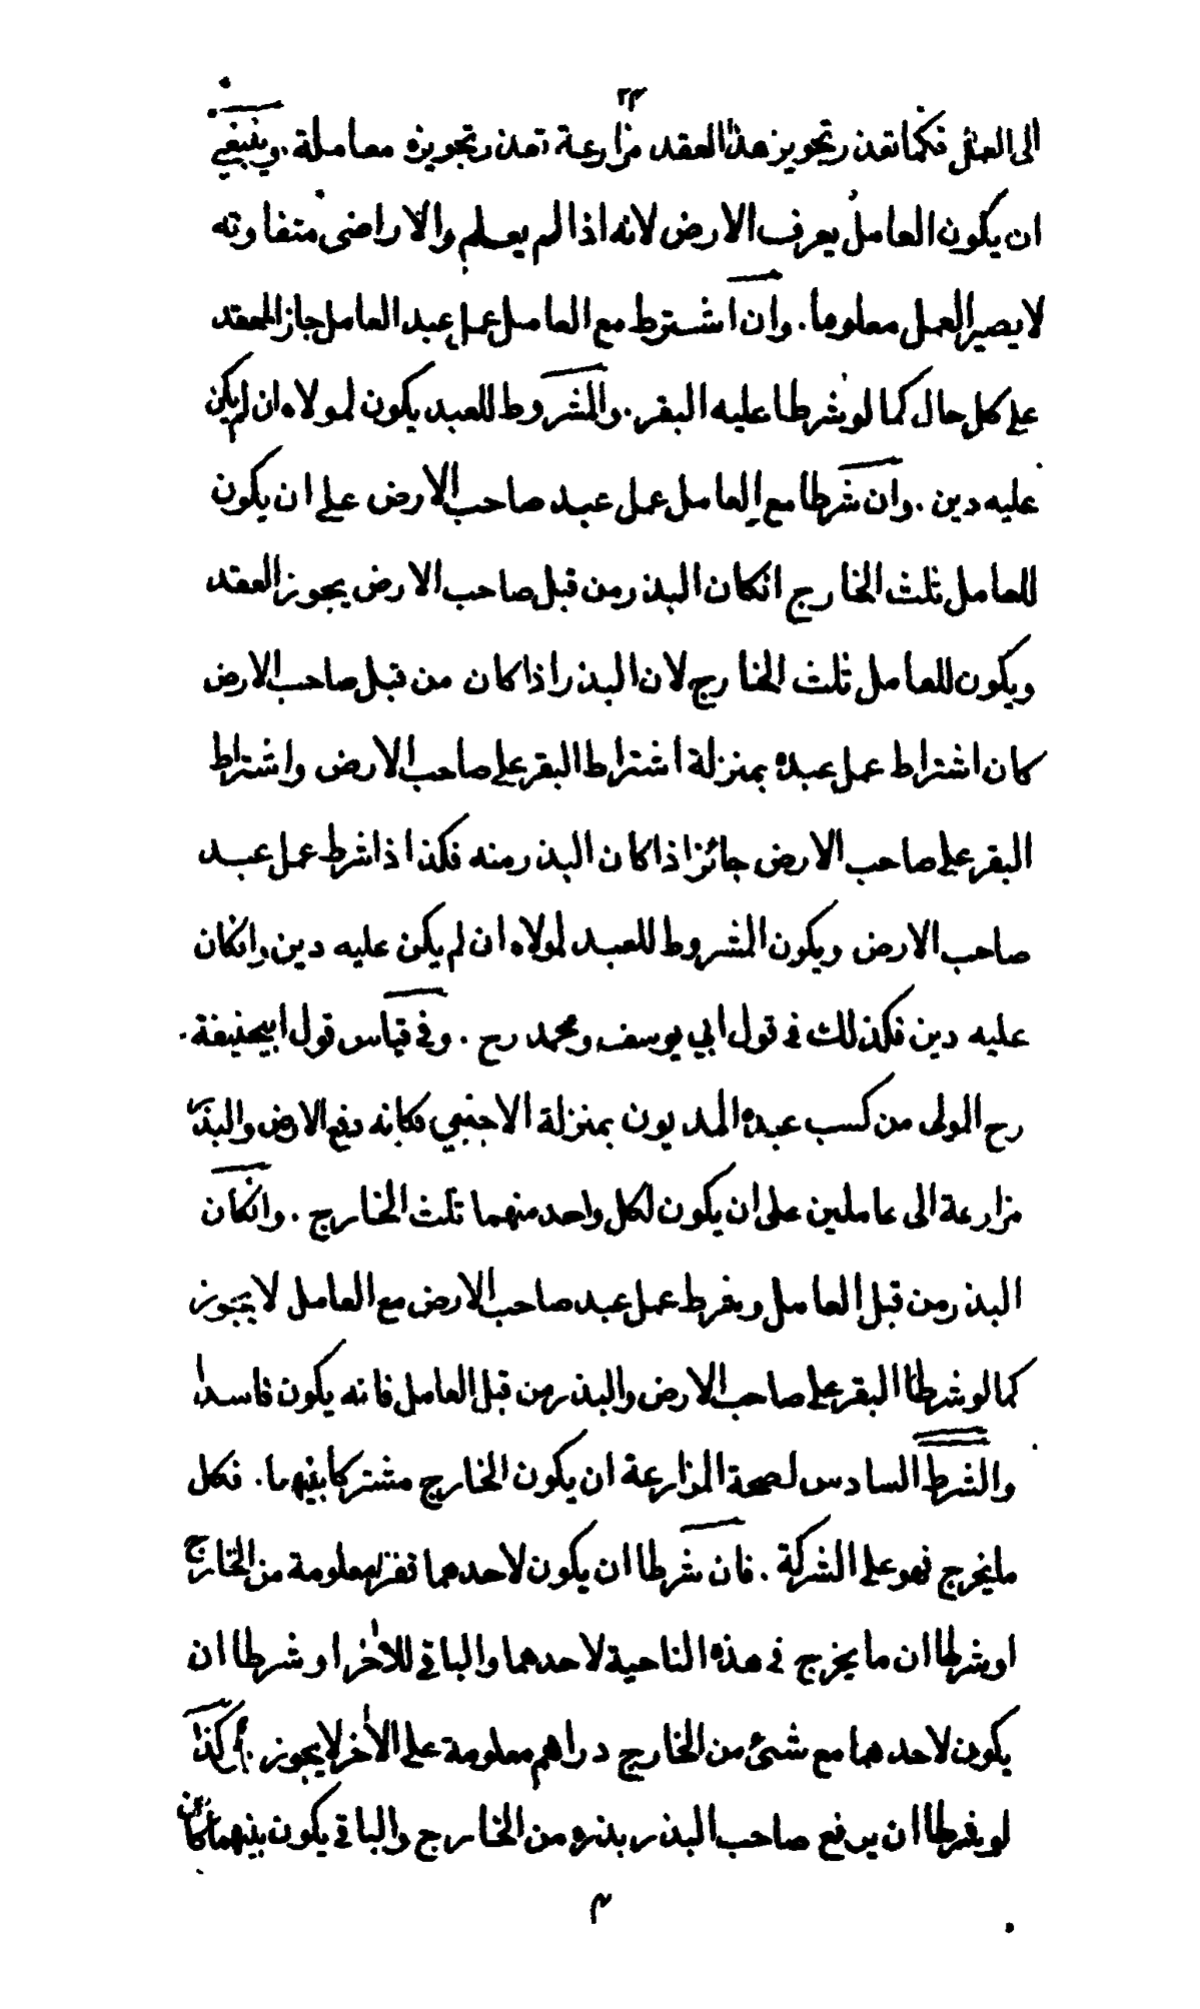 ٢٣
الى العامل فكما تعذر تجويز هذا العقد مزارعة تعذر تجويزه معاملة . وينبغي
ان يكون العامل يعرف الارض لانه اذا لم يعلم والاراضى متفاوته
لا يصير العمل معلوما . وان اشترط مع العامل عمل عبد العامل جاز العقد
على كل حال كما لو شرطا عليه البقر . والمشروط للعبد يكون لمولاه ان لم يكن
عليه دين . وان شرطا مع العامل عمل عبد صاحب الارض على ان يكون
للعامل ثلث الخارج انكان البذر من قبل صاحب الارض يجوز العقد
ويكون للعامل ثلث الخارج لان البذر اذا كان من قبل صاحب الارض
كان اشتراط عمل عبده بمنزلة اشتراط البقر على صاحب الارض واشتراط
البقر على صاحب الارض جائز اذا كان البذر منه فكذا اذا شرط عمل عبد
صاحب الارض ويكون المشروط للعبد لمولاه ان لم يكن عليه دين وانكان
عليه دين فكذلك فى قول ابي يوسف ومحمد رح . وفى قياس قول ابيحنيفة
رح المولى من كسب عبده المديون بمنزلة الاجنبي فكانه دفع الارض والبذر
مزارعة الى عاملين على ان يكون لكل واحد منهما ثلث الخارج . وانكان
البذر من قبل العامل وشرط عمل عبد صاحب الارض مع العامل لا يجوز
كما لو شرطا البقر على صاحب الارض والبذر من قبل العامل فانه يكون فاسدا
والشرط السادس لصحة المزارعة ان يكون الخارج مشتركا بينهما . فكل
ما يخرج فهو على الشركة . فان شرطا ان يكون لاحدهما قفزا معلومة من الخارج
او شرطا ان ما يخرج فى هذه الناحية لاحدهما والباقي للآخر او شرطا ان
يكون لاحدهما مع شئ من الخارج دراهم معلومة على الآخر لا يجوز . كذا
لو شرطا ان يرفع صاحب البذر بذره من الخارج والباقى يكون بينهما كان